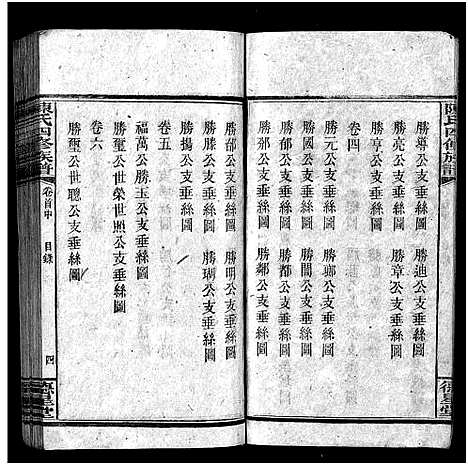 陳氏四修族譜
勝迪公支垂絲圖
勝亮公支垂絲圖
勝享公支垂絲圖
卷四
勝元公支垂絲圖
勝鄉公支垂絲圖
勝閒公支垂絲圖
勝都公支垂絲圖
勝那公支垂絲圖
勝鄰公支垂絲圖
勝郁公支垂絲圖
勝明公支垂絲圖
勝滕公支垂絲圖
勝瑚公支垂絲圖
勝揚公支垂絲圖
卷五
福萬公勝玉公支垂絲圖
勝璽公世榮世照公支垂絲圖
卷六
勝璽公世聰公支垂絲圖
陳氏四修族譜
卷首中
目錄
四
德星堂
德星堂